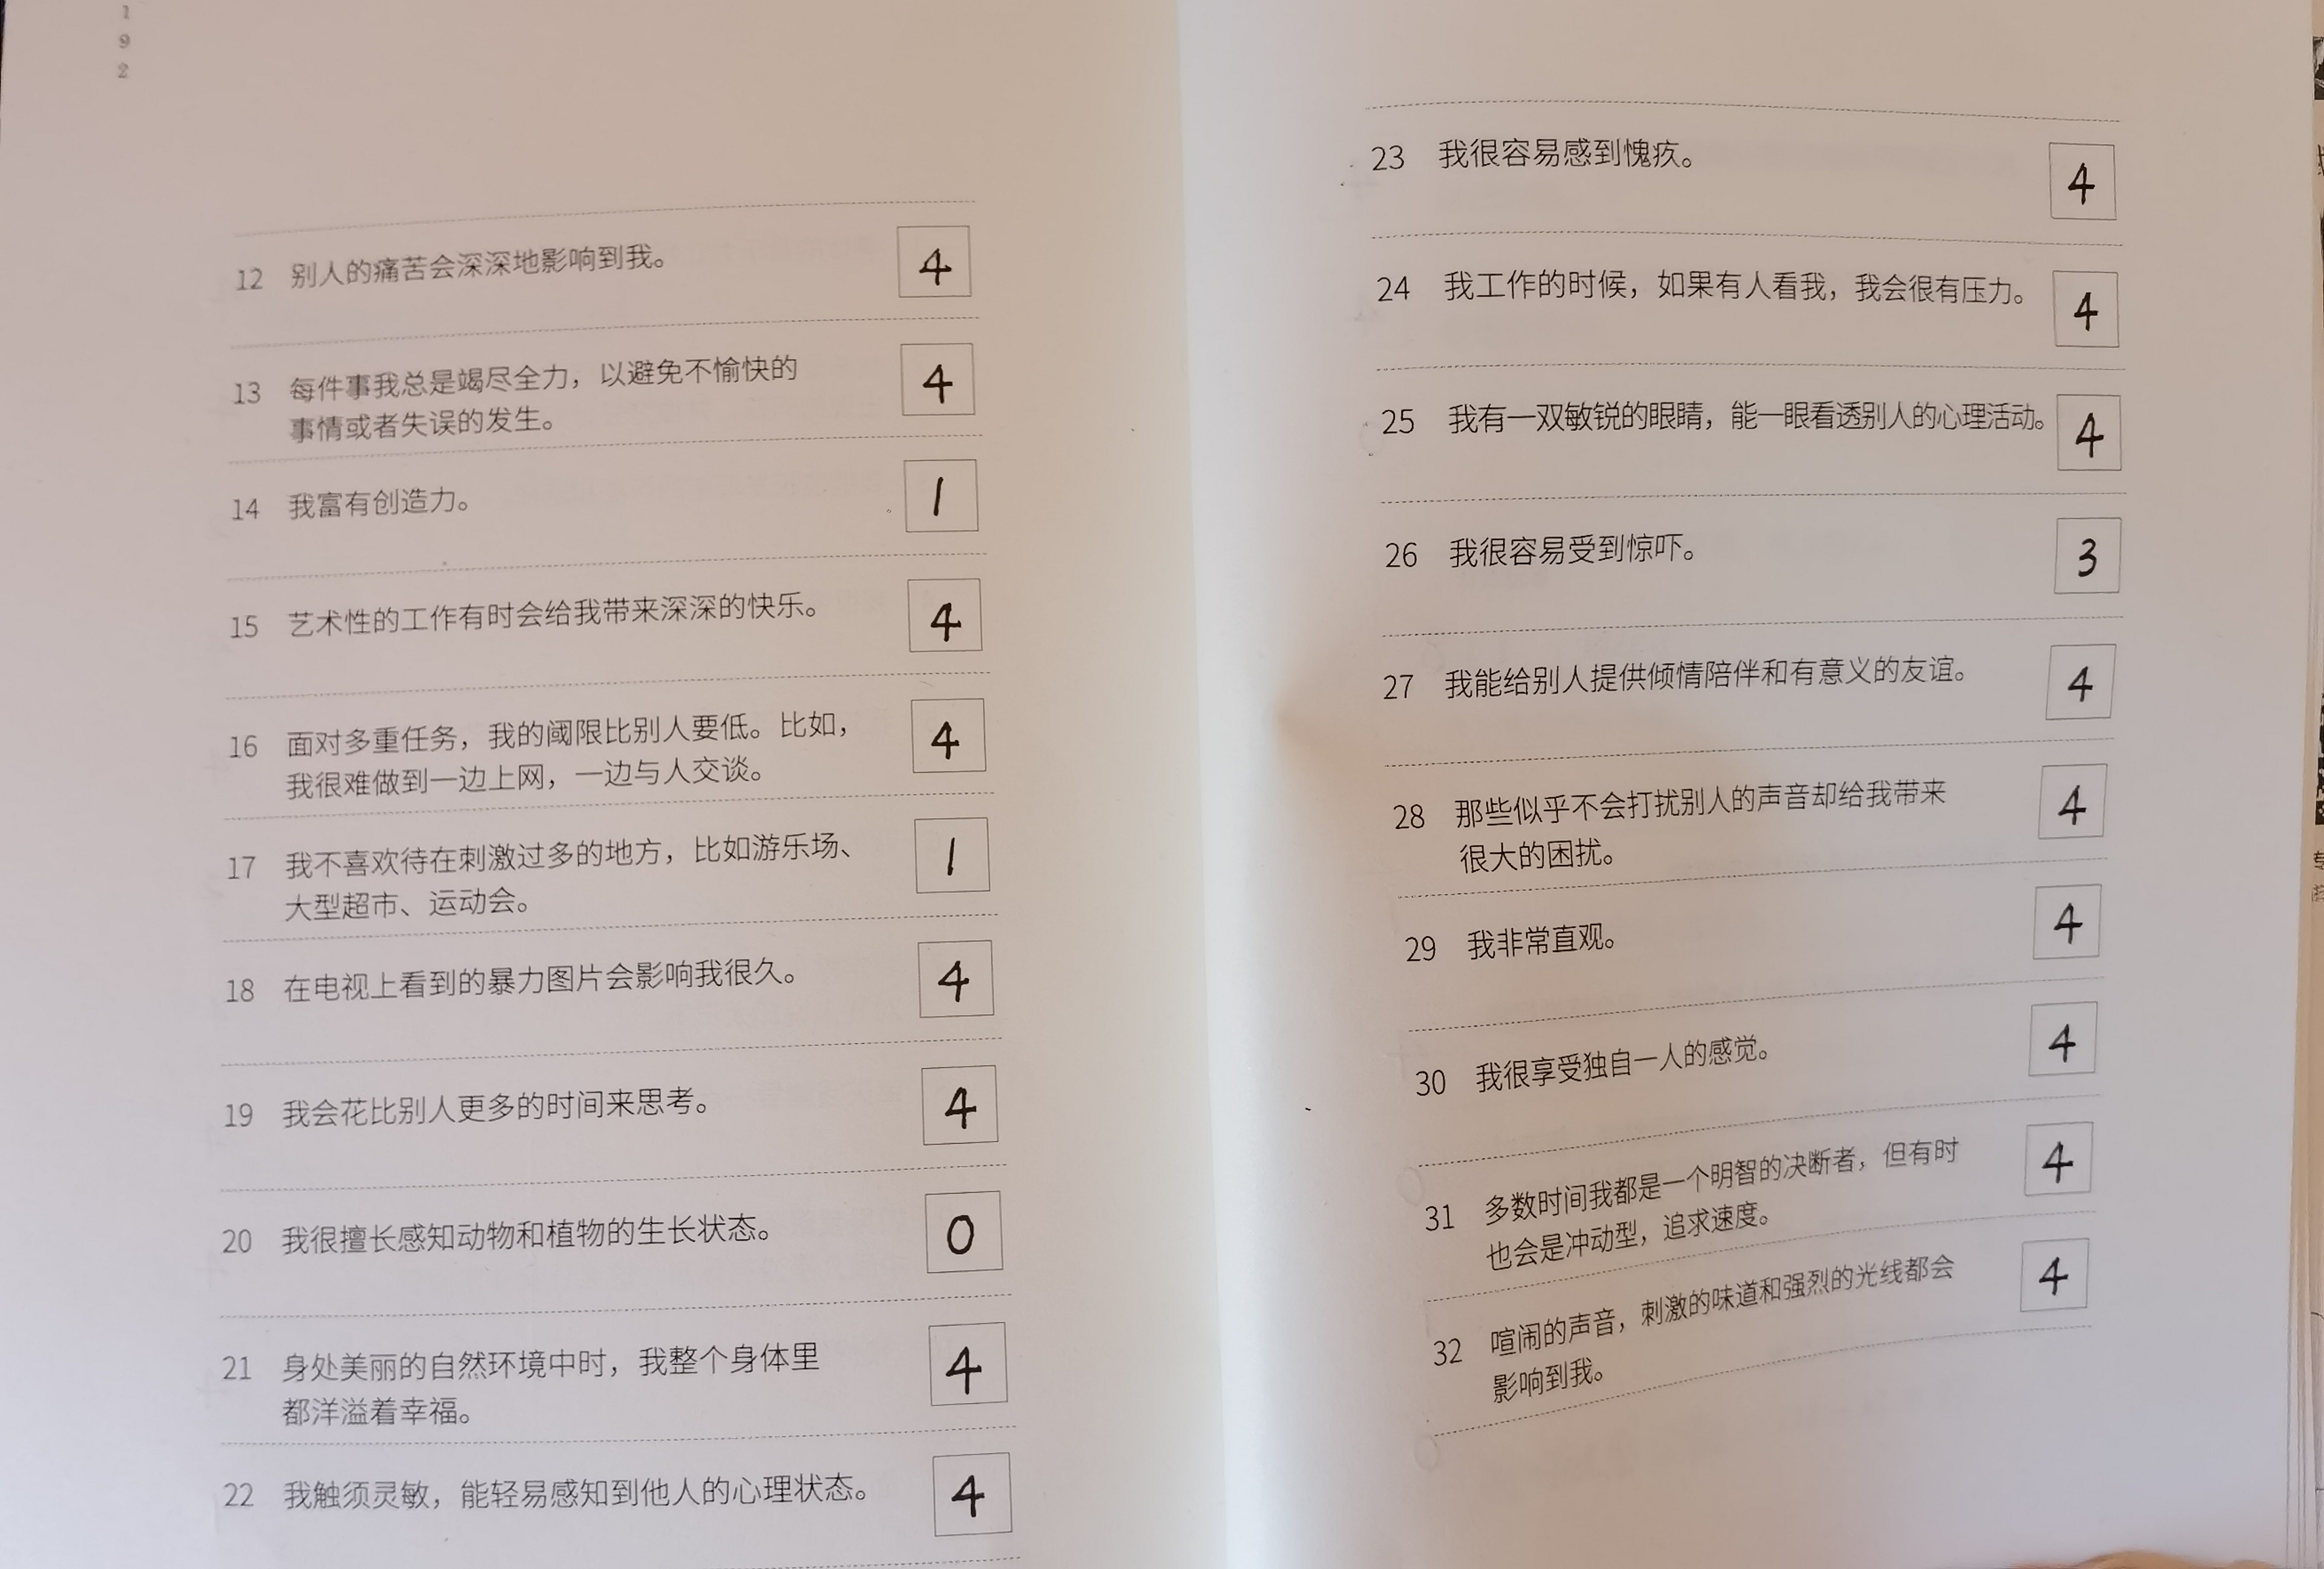 192
12 别人的痛苦会深深地影响到我。 4
13 每件事我总是竭尽全力，以避免不愉快的 4
事情或者失误的发生。
14 我富有创造力。 1
15 艺术性的工作有时会给我带来深深的快乐。 4
16 面对多重任务，我的阈限比别人要低。比如， 4
我很难做到一边上网，一边与人交谈。
17 我不喜欢待在刺激过多的地方，比如游乐场、 1
大型超市、运动会。
18 在电视上看到的暴力图片会影响我很久。 4
19 我会花比别人更多的时间来思考。 4
20 我很擅长感知动物和植物的生长状态。 0
21 身处美丽的自然环境中时，我整个身体里 4
都洋溢着幸福。
22 我触须灵敏，能轻易感知到他人的心理状态。 4
23 我很容易感到愧疚。 4
24 我工作的时候，如果有人看我，我会很有压力。 4
25 我有一双敏锐的眼睛，能一眼看透别人的心理活动。 4
26 我很容易受到惊吓。 3
27 我能给别人提供倾情陪伴和有意义的友谊。 4
28 那些似乎不会打扰别人的声音却给我带来 4
很大的困扰。
29 我非常直观。 4
30 我很享受独自一人的感觉。 4
31 多数时间我都是一个明智的决断者，但有时 4
也会是冲动型，追求速度。
32 喧闹的声音，刺激的味道和强烈的光线都会 4
影响到我。